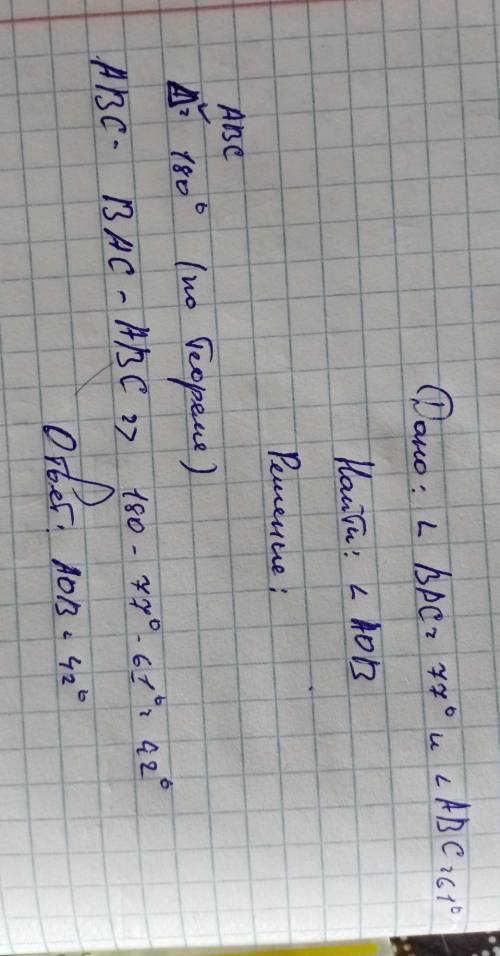 Дано: ∠ BAC = 77° и ∠ ABC = 61°
Найти: ∠ AOB
Решение:
ABC
Δ = 180° (по теореме)
ABC - BAC - ABC => 180 - 77° - 61° = 42°
Ответ: AOB = 42°